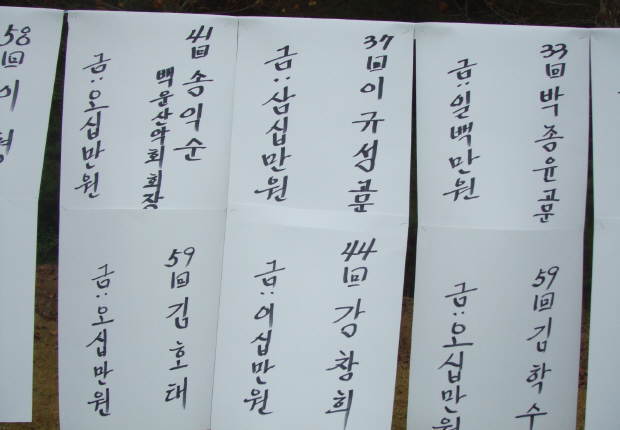 33回 박종윤 고문
금: 일백만원
37回 이규성 고문
금: 삼십만원
41回 송익순
백운산악회회장
금: 오십만원
58回 이
59回 김학수
금: 오십만원
44回 강창희
금: 이십만원
59回 김호태
금: 오십만원